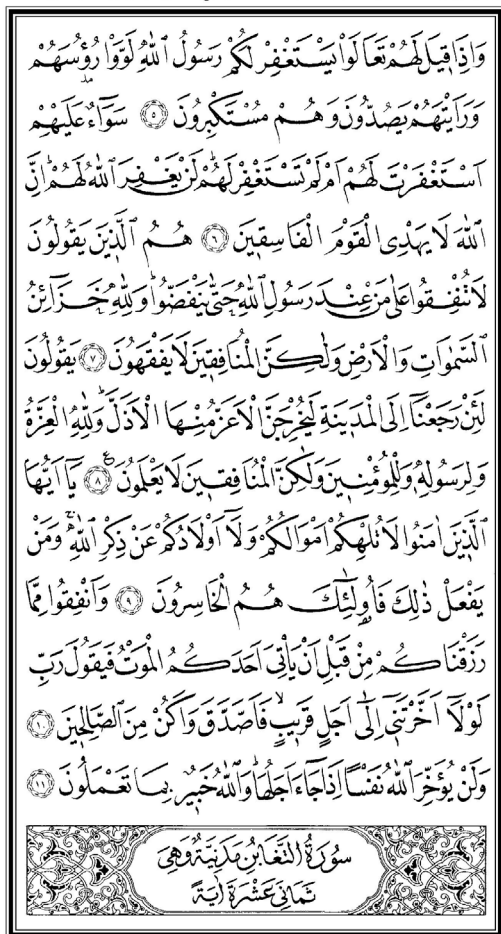 وَاِذَا قٖيلَ لَهُمْ تَعَالَوْا يَسْتَغْفِرْ لَكُمْ رَسُولُ اللّٰهِ لَوَّوْا رُؤُ۫سَهُمْ
وَرَاَيْتَهُمْ يَصُدُّونَ وَهُمْ مُسْتَكْبِرُونَ ﴿٥﴾ سَوَٓاءٌ عَلَيْهِمْ
اَسْتَغْفَرْتَ لَهُمْ اَمْ لَمْ تَسْتَغْفِرْ لَهُمْۜ لَنْ يَغْفِرَ اللّٰهُ لَهُمْۜ اِنَّ
اللّٰهَ لَا يَهْدِى الْقَوْمَ الْفَاسِقٖينَ ﴿٦﴾ هُمُ الَّذٖينَ يَقُولُونَ
لَا تُنْفِقُوا عَلٰى مَنْ عِنْدَ رَسُولِ اللّٰهِ حَتّٰى يَنْفَضُّواۜ وَلِلّٰهِ خَزَٓائِنُ
السَّمٰوَاتِ وَالْاَرْضِ وَلٰكِنَّ الْمُنَافِقٖينَ لَا يَفْقَهُونَ ﴿٧﴾ يَقُولُونَ
لَئِنْ رَجَعْنَٓا اِلَى الْمَدٖينَةِ لَيُخْرِجَنَّ الْاَعَزُّ مِنْهَا الْاَذَلَّۜ وَلِلّٰهِ الْعِزَّةُ
وَلِرَسُولِهٖ وَلِلْمُؤْمِنٖينَ وَلٰكِنَّ الْمُنَافِقٖينَ لَا يَعْلَمُونَ ﴿٨﴾ يَٓا اَيُّهَا
الَّذٖينَ اٰمَنُوا لَا تُلْهِكُمْ اَمْوَالُكُمْ وَلَٓا اَوْلَادُكُمْ عَنْ ذِكْرِ اللّٰهِۚ وَمَنْ
يَفْعَلْ ذٰلِكَ فَاُو۬لٰٓئِكَ هُمُ الْخَاسِرُونَ ﴿٩﴾ وَاَنْفِقُوا مِمَّا
رَزَقْنَاكُمْ مِنْ قَبْلِ اَنْ يَاْتِىَ اَحَدَكُمُ الْمَوْتُ فَيَقُولَ رَبِّ
لَوْلَٓا اَخَّرْتَنٖٓى اِلٰٓى اَجَلٍ قَرٖيبٍۙ فَاَصَّدَّقَ وَاَكُنْ مِنَ الصَّالِحٖينَ ﴿١٠﴾
وَلَنْ يُؤَخِّرَ اللّٰهُ نَفْسًا اِذَا جَٓاءَ اَجَلُهَاۜ وَاللّٰهُ خَبٖيرٌ بِمَا تَعْمَلُونَ ﴿١١﴾
سُورَةُ التَّغَابُنِ مَدَنِيَّةٌ وَهِىَ
ثَمَانِى عَشْرَةَ اٰيَةً